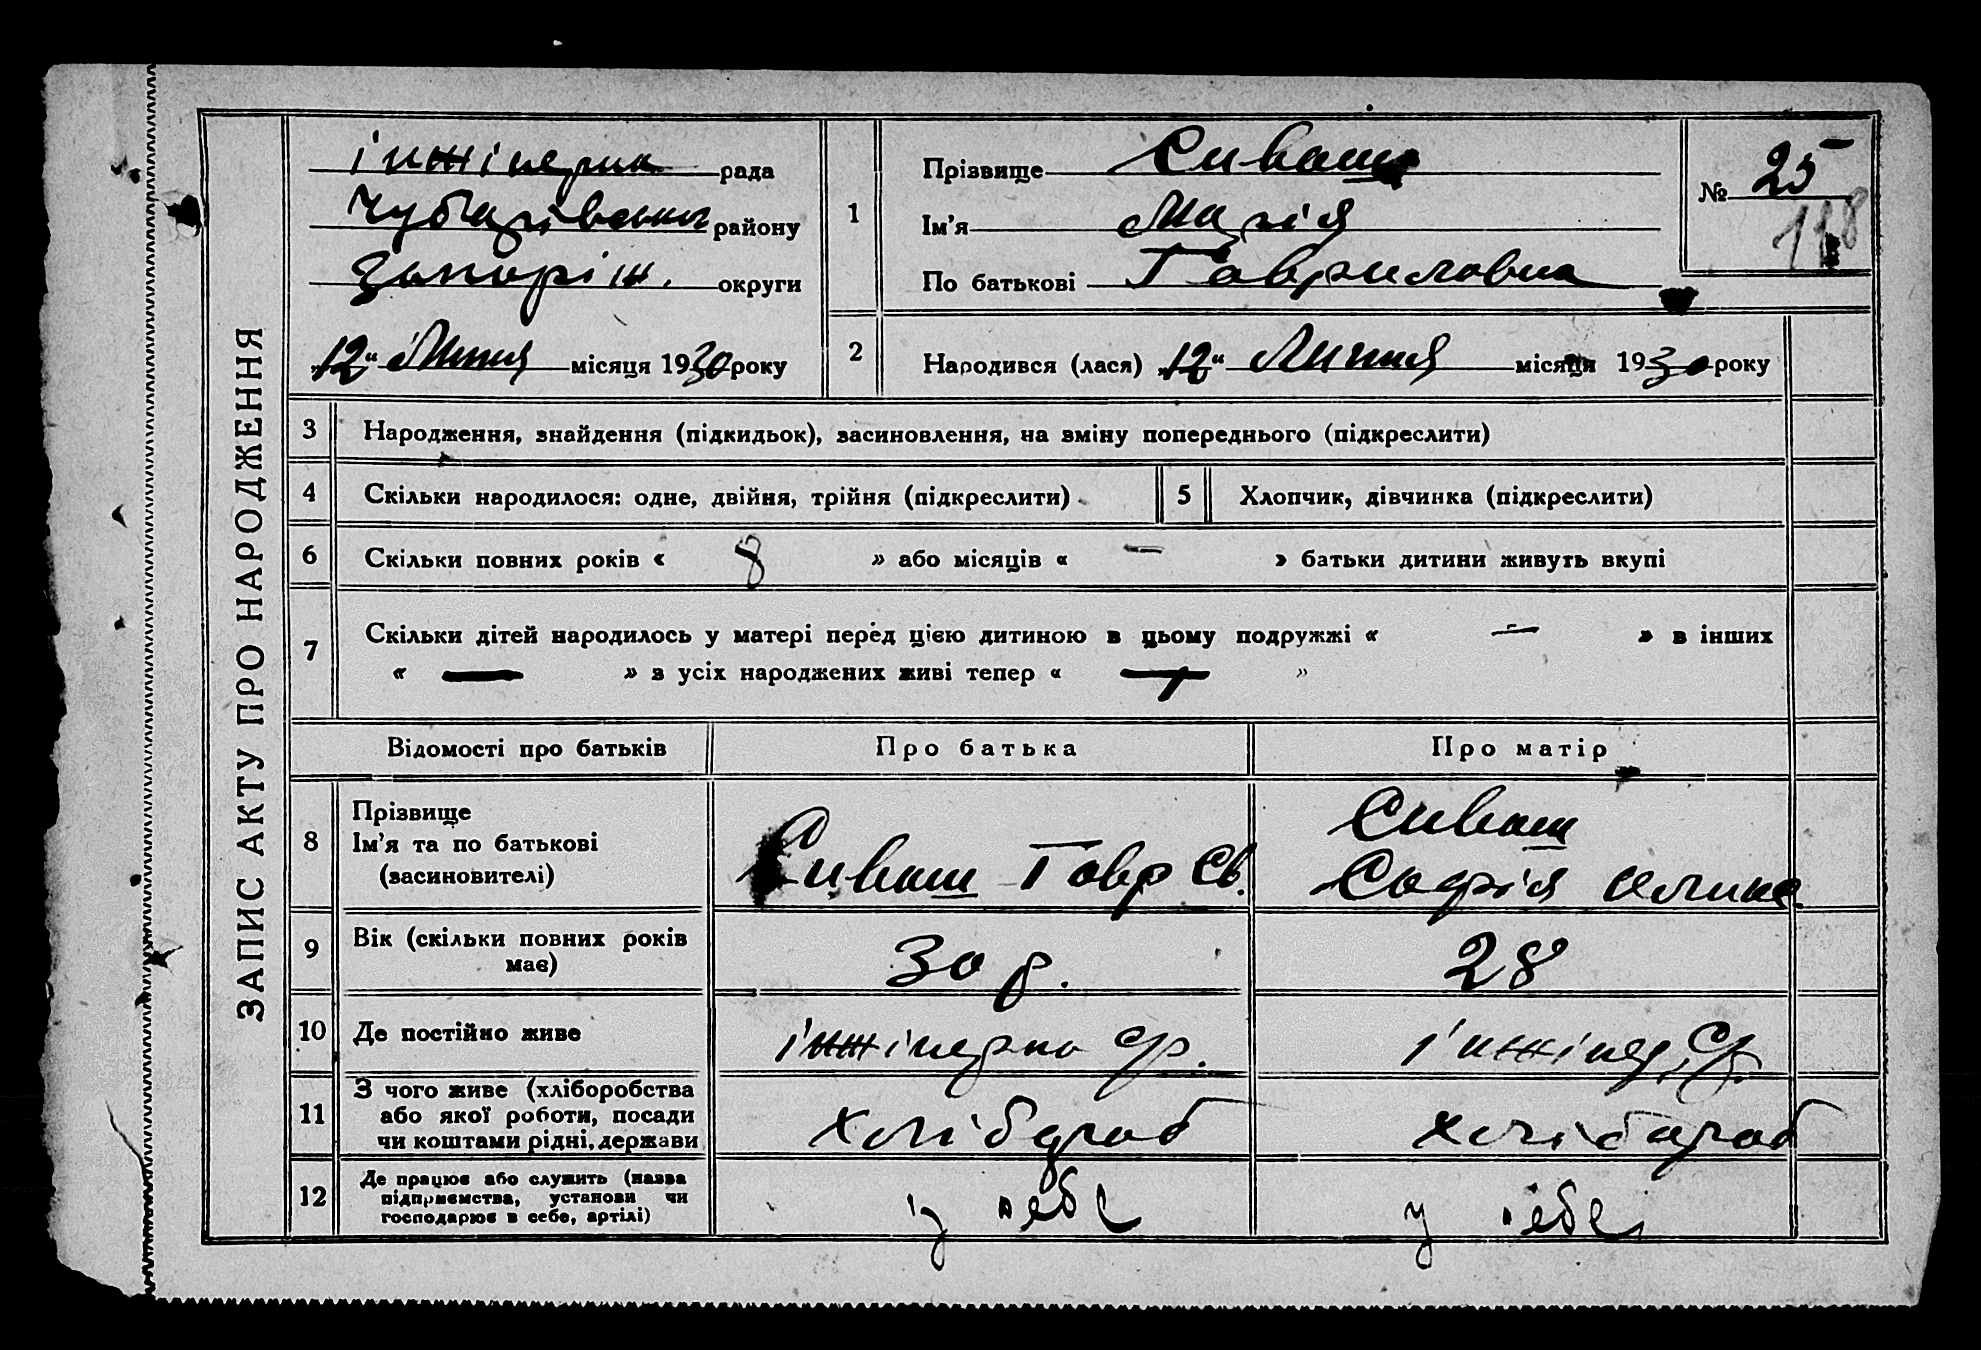 ЗАПИС АКТУ ПРО НАРОДЖЕННЯ
інжінерна рада
Чубарівськ району
Запоріж. округи
„12“ Липня місяця 1930 року
1
Прізвище Сиваш
Ім'я Марія
По батькові Гавриловна
№ 25
118
2
Народився (лася) „12“ Липня місяця 1930 року
3 Народження, знайдення (підкидьок), засиновлення, на зміну попереднього (підкреслити)
4 Скільки народилося: одне, двійня, трійня (підкреслити)
5 Хлопчик, дівчинка (підкреслити)
6 Скільки повних років « 8 » або місяців « — » батьки дитини живуть вкупі
7 Скільки дітей народилось у матері перед цією дитиною в цьому подружжі « — » в інших
« — » з усіх народжених живі тепер « — »
Відомості про батьків Про батька Про матір
8
Прізвище
Ім'я та по батькові
(засиновителі)
Сиваш Гавр Св.
Сиваш
Софія
9
Вік (скільки повних років
має)
30 р.
28
10 Де постійно живе
інжінерна ср.
інжінер. Ср.
11
З чого живе (хліборобства
або якої роботи, посади
чи коштами рідні, держави
хлібороб
хлібороб
12
Де працює або служить (назва
підприємства, установи чи
господарює в себе, артілі)
у себе
у себе